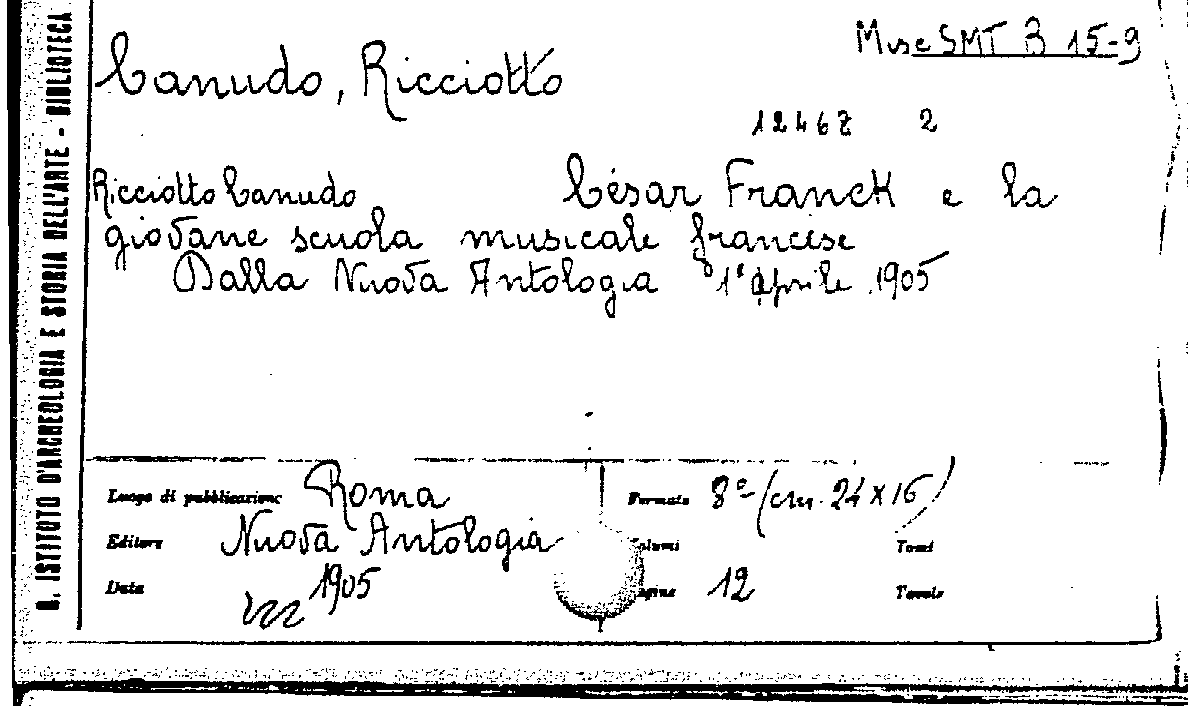 R. ISTITUTO D'ARCHEOLOGIA E STORIA DELL'ARTE - BIBLIOTECA
Misc SMT B 15-9
Canudo, Ricciotto
12467 2
Ricciotto Canudo César Franck e la
giovane scuola musicale francese
Dalla Nuova Antologia 1° aprile 1905
Luogo di pubblicazione Roma Formato 8° (cm. 24 x 16)
Editore Nuova Antologia Volumi Tomi
Data 1905 Pagine 12 Tavole